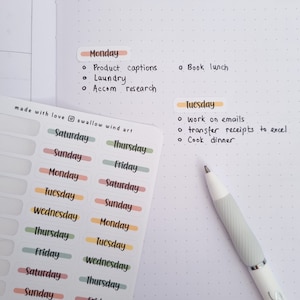 Monday
Product captions
Laundry
Accom research
Book lunch
Tuesday
Work on emails
transfer receipts to excel
Cook dinner
made with love swallow wind art
Saturday
Thursday
Sunday
Friday
Monday
Saturday
Tuesday
Sunday
Wednesday
Monday
Thursday
Tuesday
Friday
Wednesday
Saturday
Thursday
Sunday
Friday